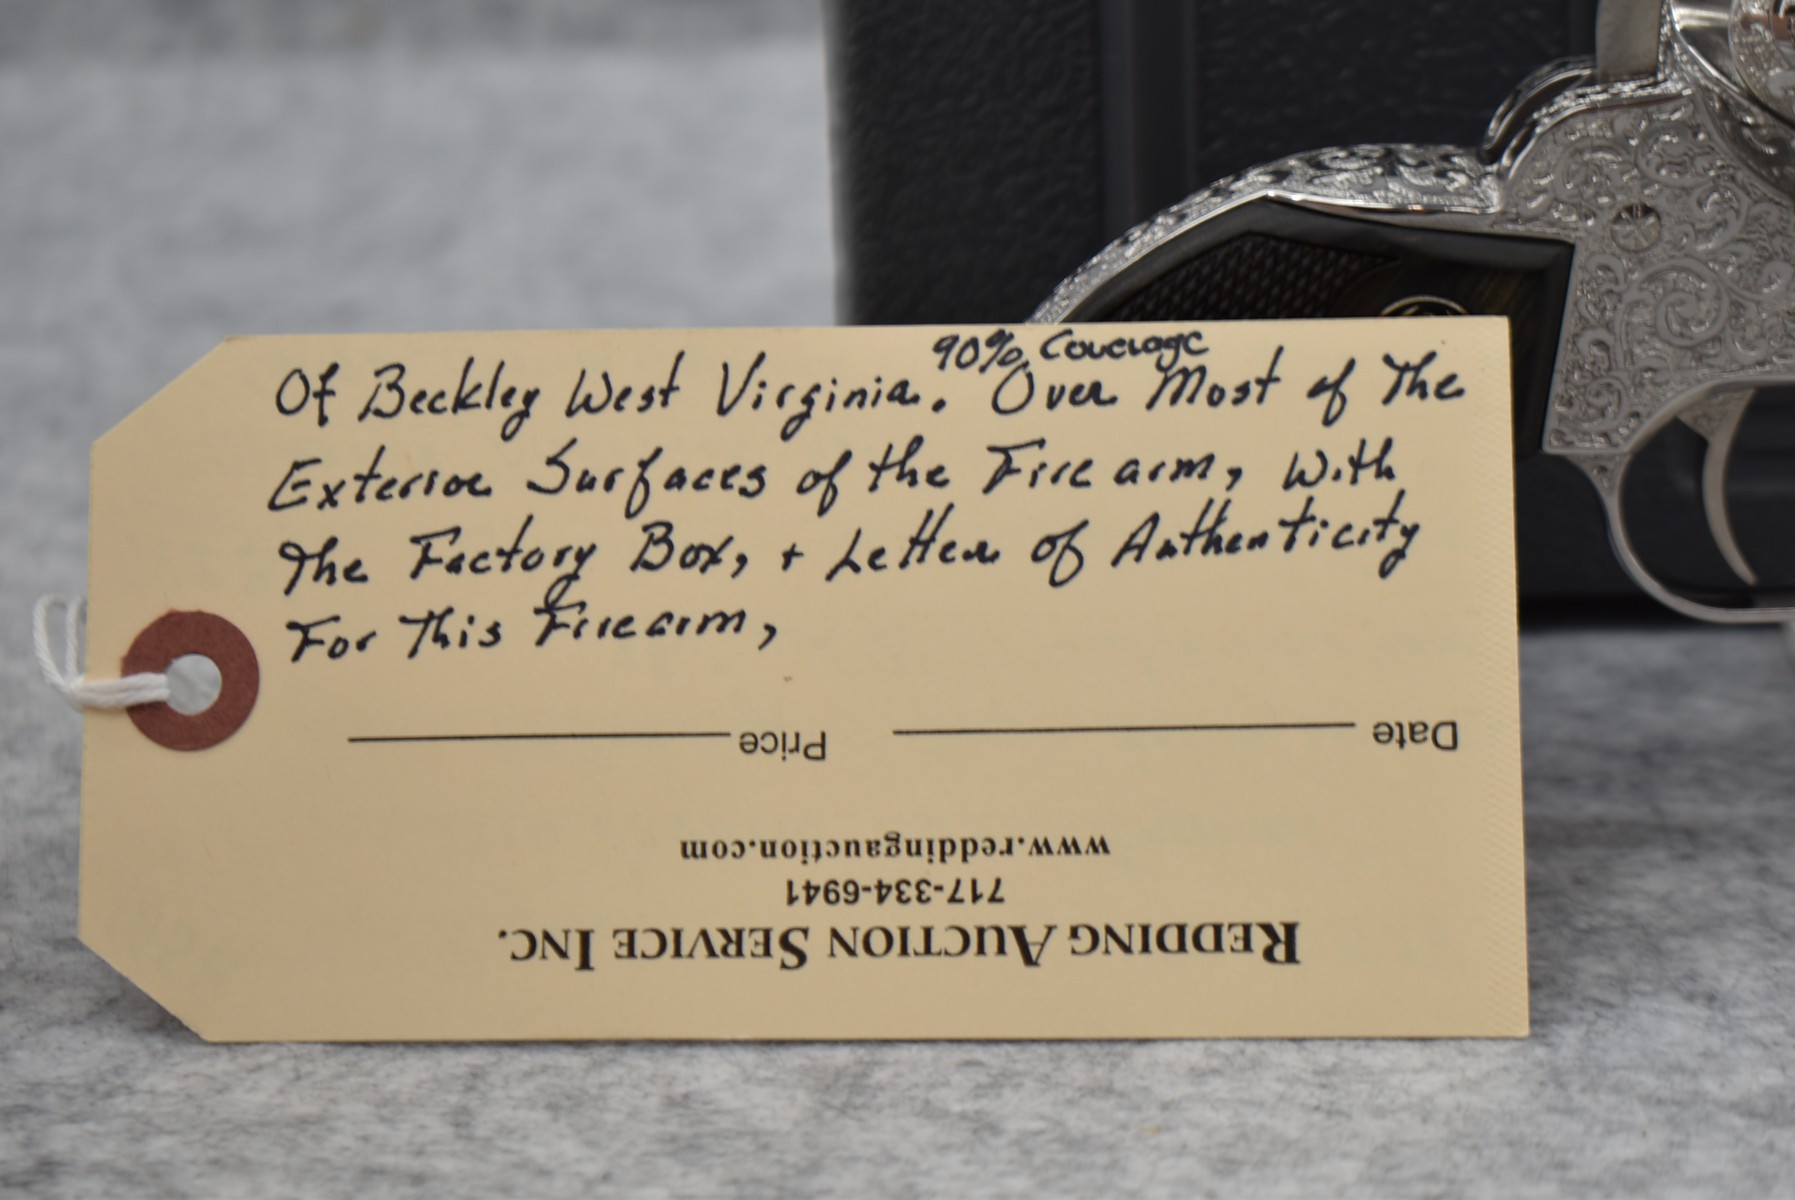 90% Coverage
Of Beckley West Virginia. Over Most of The
Exterior Surfaces of the Firearm, With
The Factory Box, + Letter of Authenticity
For This Firearm,
Date Price
www.reddingauction.com
717-334-6941
REDDING AUCTION SERVICE INC.